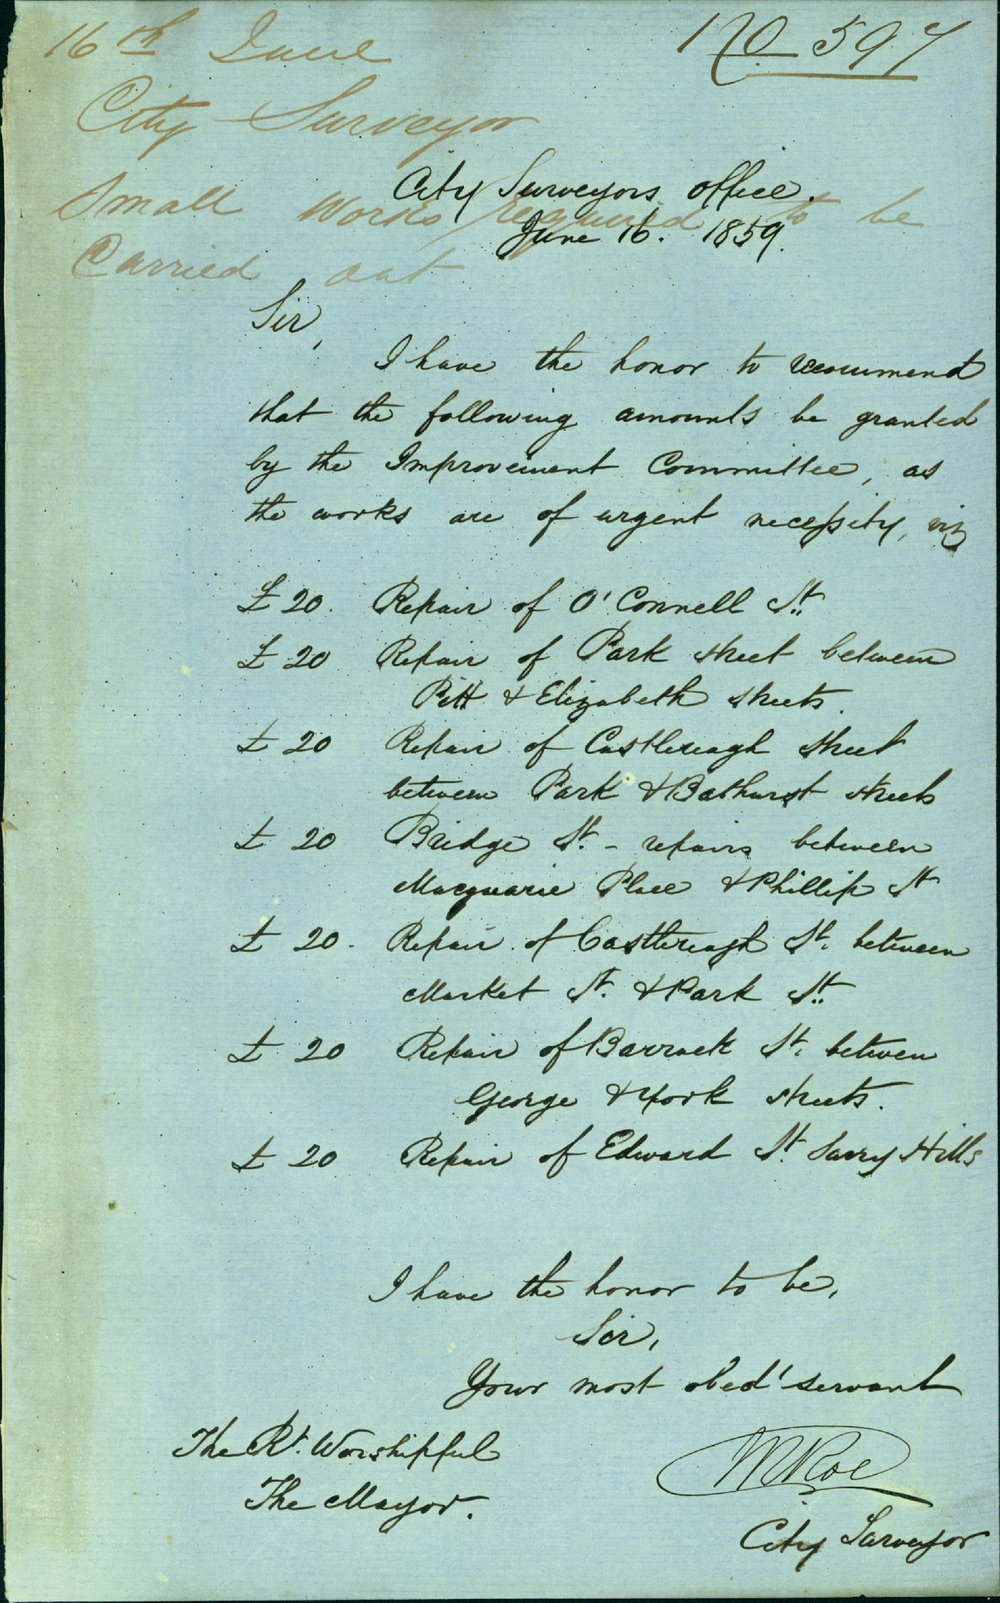 16th June
No 597
City Surveyor
Small Works required to be
Carried out
City Surveyors Office.
June 16. 1859.
Sir,
I have the honor to recommend
that the following amounts be granted
by the Improvement Committee, as
the works are of urgent necessity, viz
£20. Repair of O'Connell St.
£20 Repair of Park street between
Pitt & Elizabeth streets.
£20 Repair of Castlereagh street
between Park & Bathurst streets
£20 Bridge St. - repairs between
Macquarie Place & Phillip St
£20. Repair of Castlereagh St. between
Market St. & Park St.
£20 Repair of Barrack St. between
George & York streets.
£20 Repair of Edward St. Surry Hills
I have the honor to be,
Sir,
Your most obedt servant
The Rt. Worshipful
The Mayor.
City Surveyor